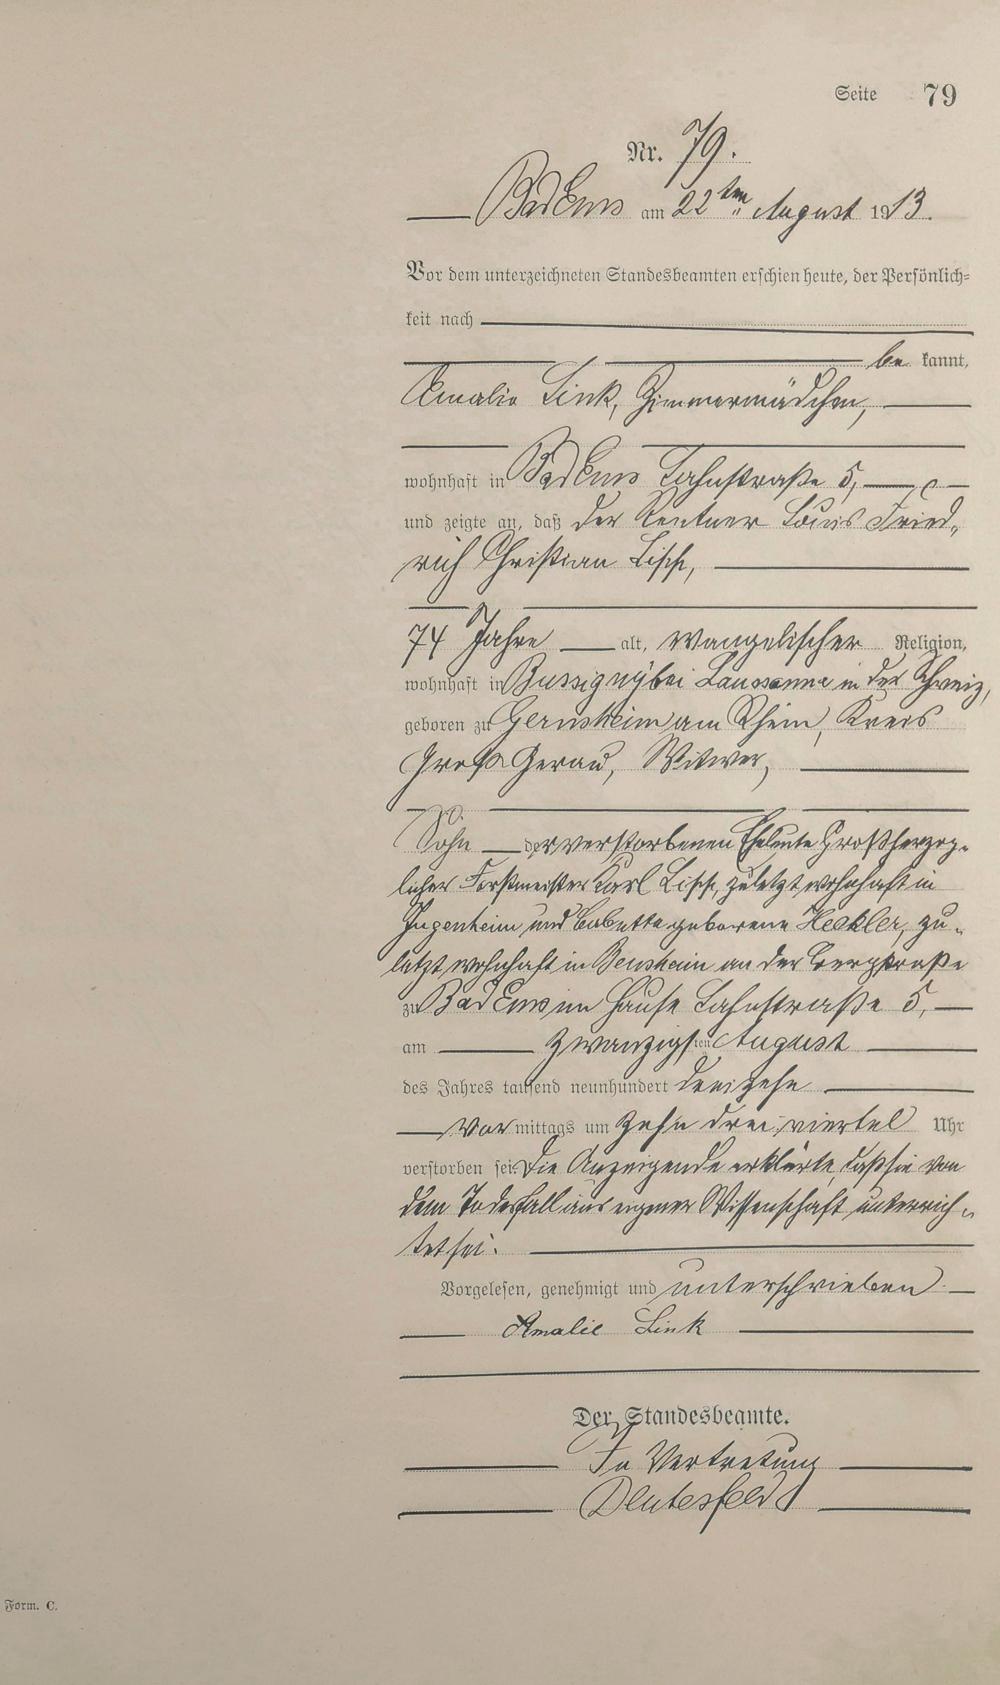 Seite 79
Nr. 79.
Bad Ems am 22ten August 1913.
Vor dem unterzeichneten Standesbeamten erschien heute, der Persönlich-
keit nach
be kannt,
Amalie Link, Zimmermädchen,
wohnhaft in Bad Ems Lahnstraße 5,
und zeigte an, daß der Rentner Louis Fried-
rich Christian
74 Jahre alt, evangelischer Religion,
wohnhaft in Bussigny bei Lausanne in der Schweiz,
geboren zu Gernsheim am Rhein, Kreis
Groß Gerau, Witwer,
Sohn der verstorbenen Eheleute Großherzog-
licher Forstmeister Karl zuletzt wohnhaft in
Jugenheim und Babette geborene Heckler, zu-
letzt wohnhaft in Bensheim an der Bergstraße
zu Bad Ems im Hause Lahnstraße 5,
am zwanzigsten August
des Jahres tausend neunhundert dreizehn
vor mittags um zehn drei viertel Uhr
verstorben sei. Die Anzeigende erklärte, daß sie von
dem Todesfall aus eigener Wissenschaft unterrich-
tet sei.
Vorgelesen, genehmigt und unterschrieben
Amalie Link
Der Standesbeamte.
In Vertretung
Form. C.